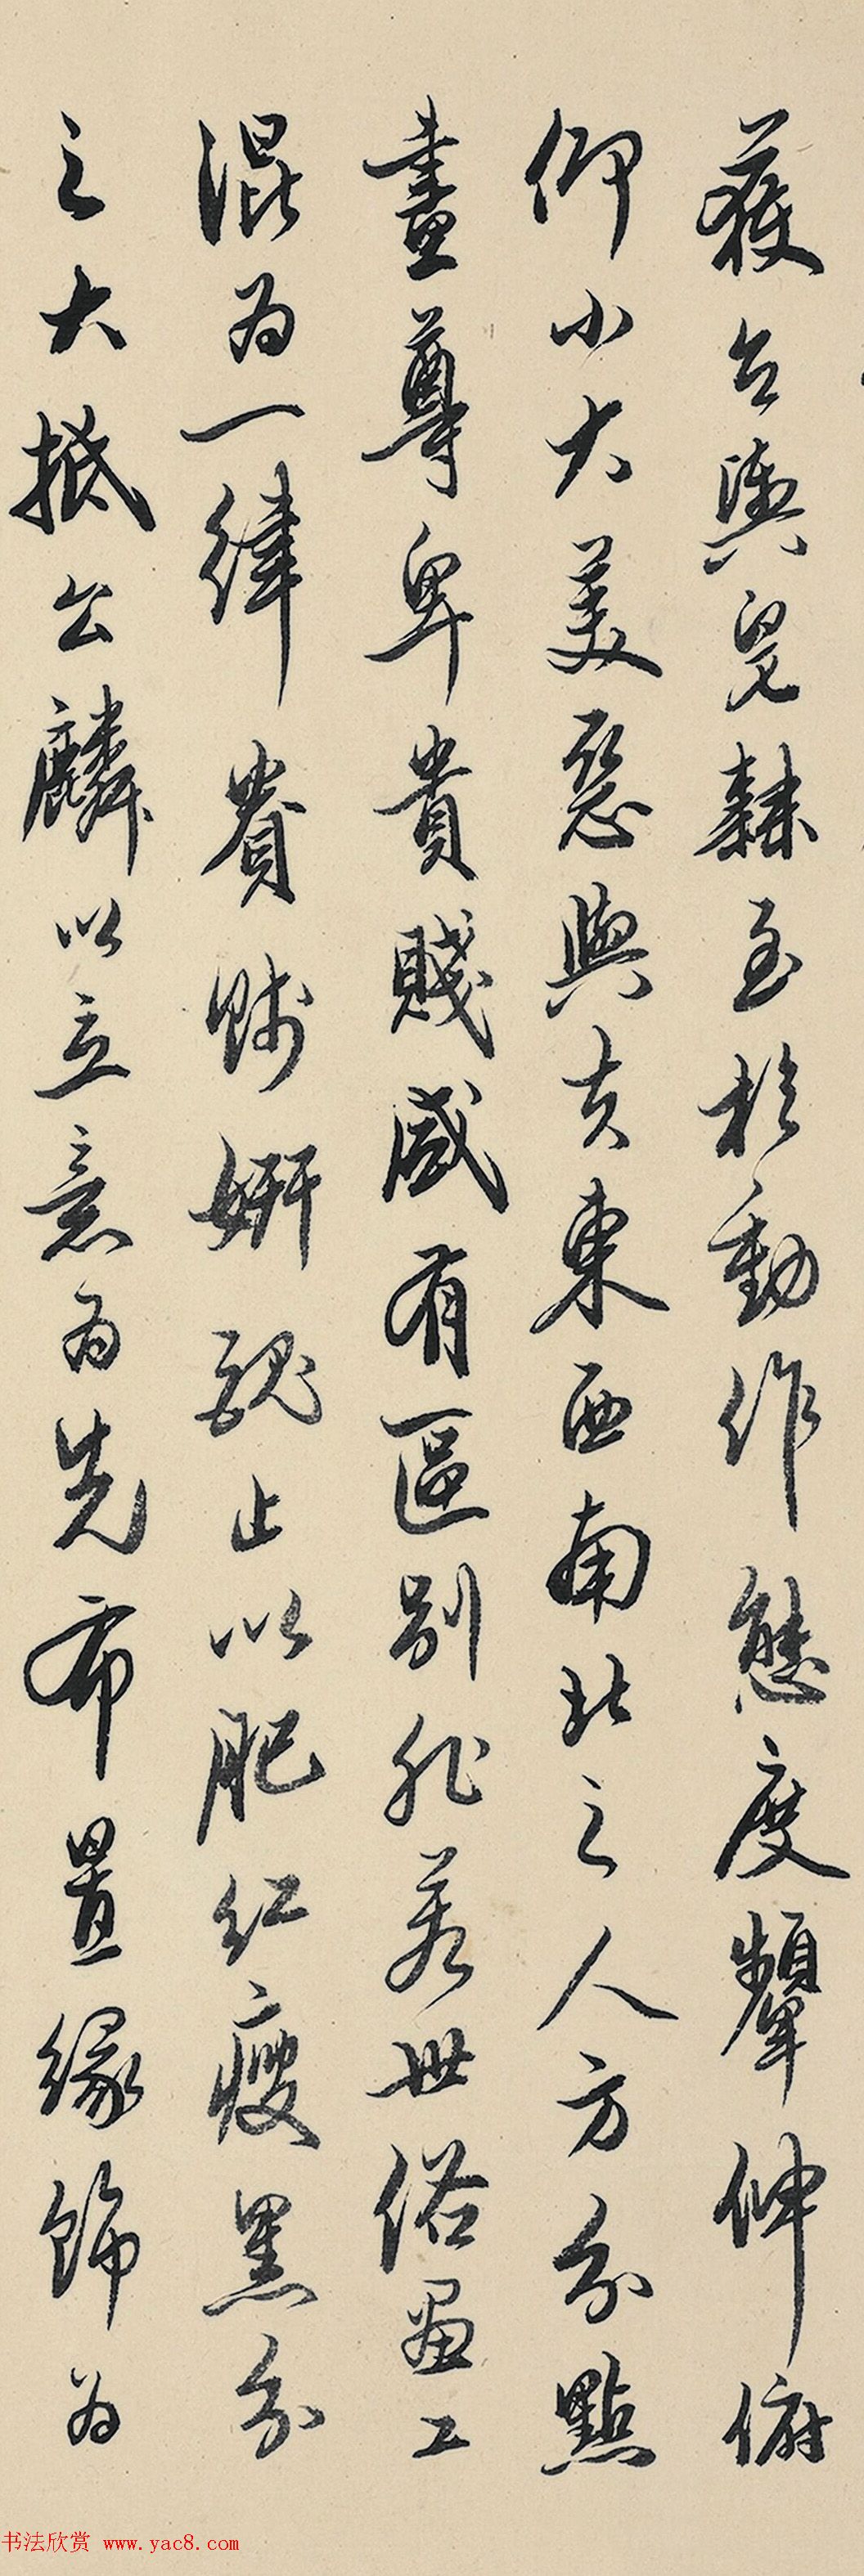 獲台輿皁隸至於動作態度顰伸俯
仰小大美惡與夫東西南北之人方分點
畫尊卑貴賤咸有區別非若世俗畫工
混為一律貴賤妍醜止以肥紅瘦黑分
之大抵公麟以立意為先布置緣飾為
书法欣赏 www.yac8.com